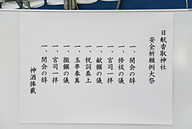 日航香取神社
安全祈願例大祭
一、開会の辞
一、修祓の儀
一、宮司一拝
一、献饌の儀
一、祝詞奏上
一、玉串奉奠
一、撤饌の儀
一、宮司一拝
一、閉会の辞
神酒拝戴